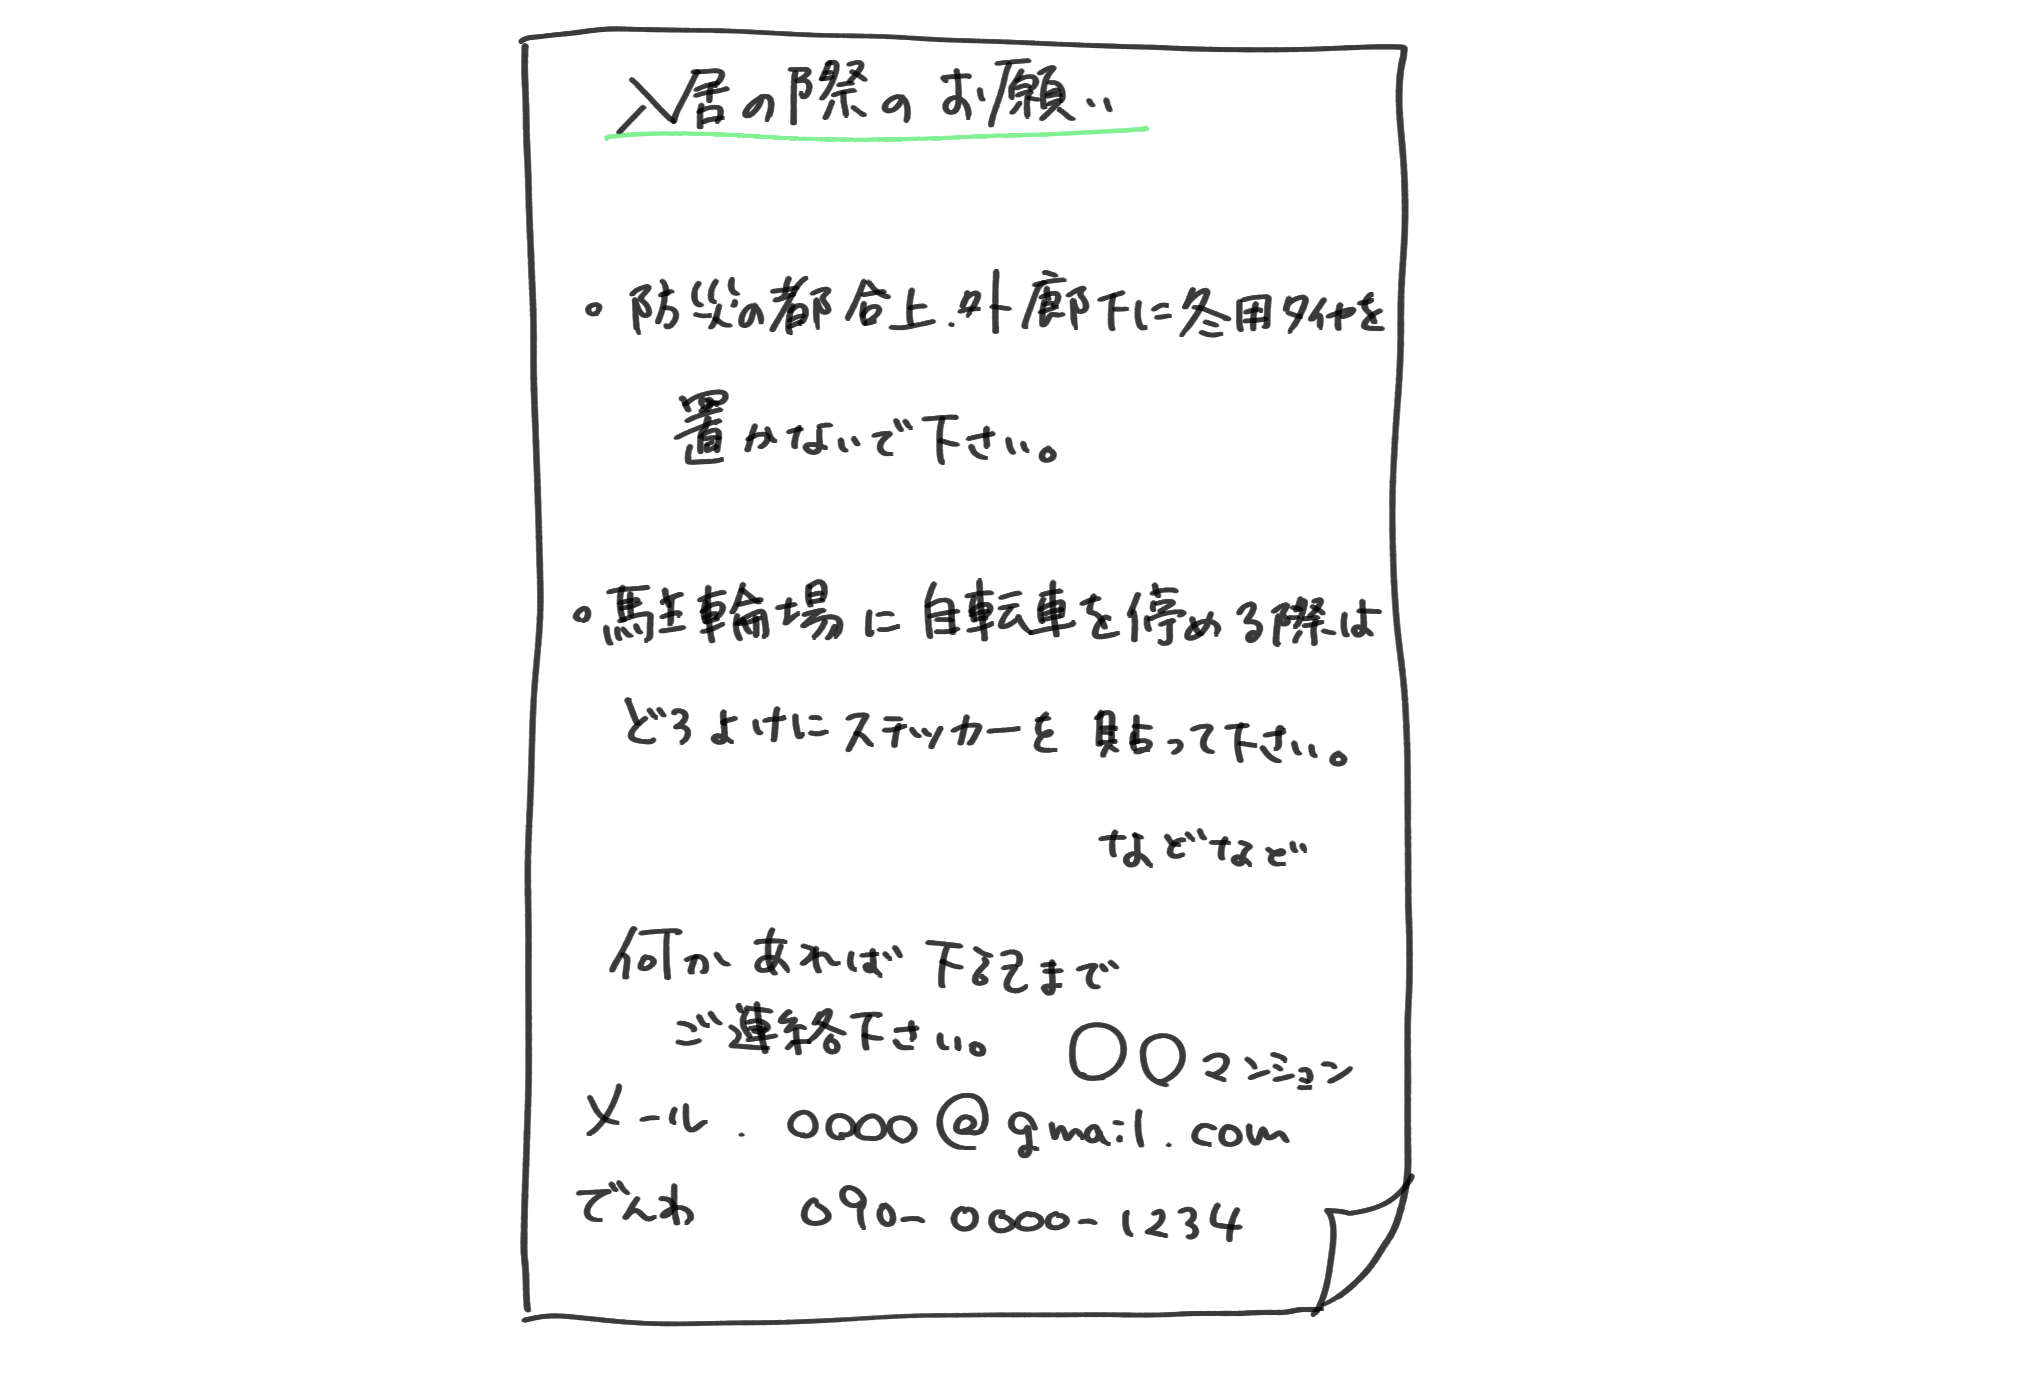 入居の際のお願い
・防災の都合上、外廊下に冬用タイヤを
置かないで下さい。
・駐輪場に自転車を停める際は
どろよけにステッカーを貼って下さい。
などなど
何かあれば下記まで
ご連絡下さい。
〇〇マンション
メール. 0000@gmail.com
でんわ 090-0000-1234